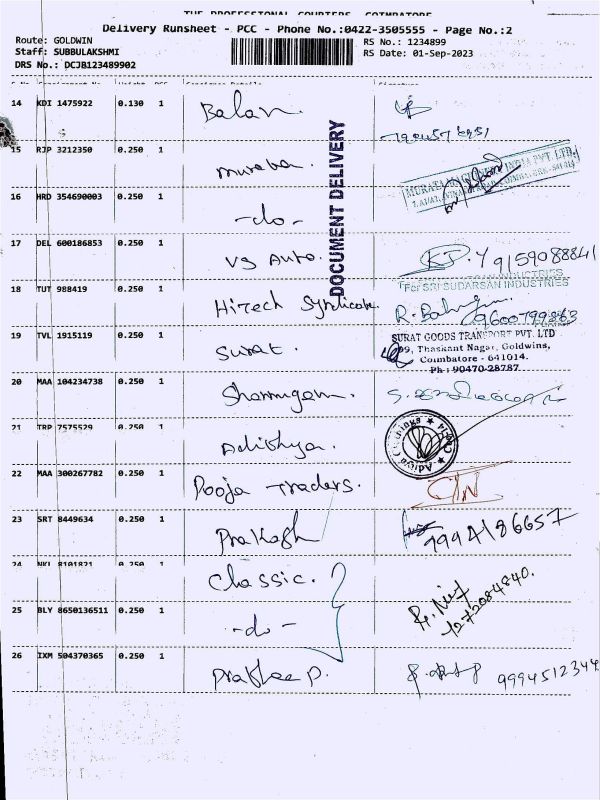 THE PROFESSIONAL COURIERS, COIMBATORE
Delivery Runsheet - PCC - Phone No.:0422-3505555 - Page No.:2
Route: GOLDWIN
Staff: SUBBULAKSHMI
DRS No.: DCJB123489902
RS No.: 1234899
RS Date: 01-Sep-2023
DOCUMENT DELIVERY
14 KDI 1475922 0.130 PCC Balan.
15 RJP 3212350 0.250 1 murata.
MURATA INDIA PVT. LTD.
16 HRD 354690003 0.250 1 -do-
17 DEL 600186853 0.250 1 VS Auto. 9159088841
18 TUT 988419 0.250 1 Hitech Syndicate.
For SRI SUDARSAN INDUSTRIES
9600799863
19 TVL 1915119 0.250 1 Surat.
SURAT GOODS TRANSPORT PVT. LTD
99, Thaskant Nagar, Goldwins,
Coimbatore - 641014.
Ph : 90470-28787
20 MAA 104234738 0.250 1 Shanmugam.
21 TRP 7575529 0.250 1 Adithya.
22 MAA 300267782 0.250 1 Pooja Traders.
23 SRT 8449634 0.250 1 Prakash 9994186657
24 NKL 8101821 0.250 1 Classic.
25 BLY 8650136511 0.250 1 -do-
26 IXM 504370365 0.250 1 9994512344